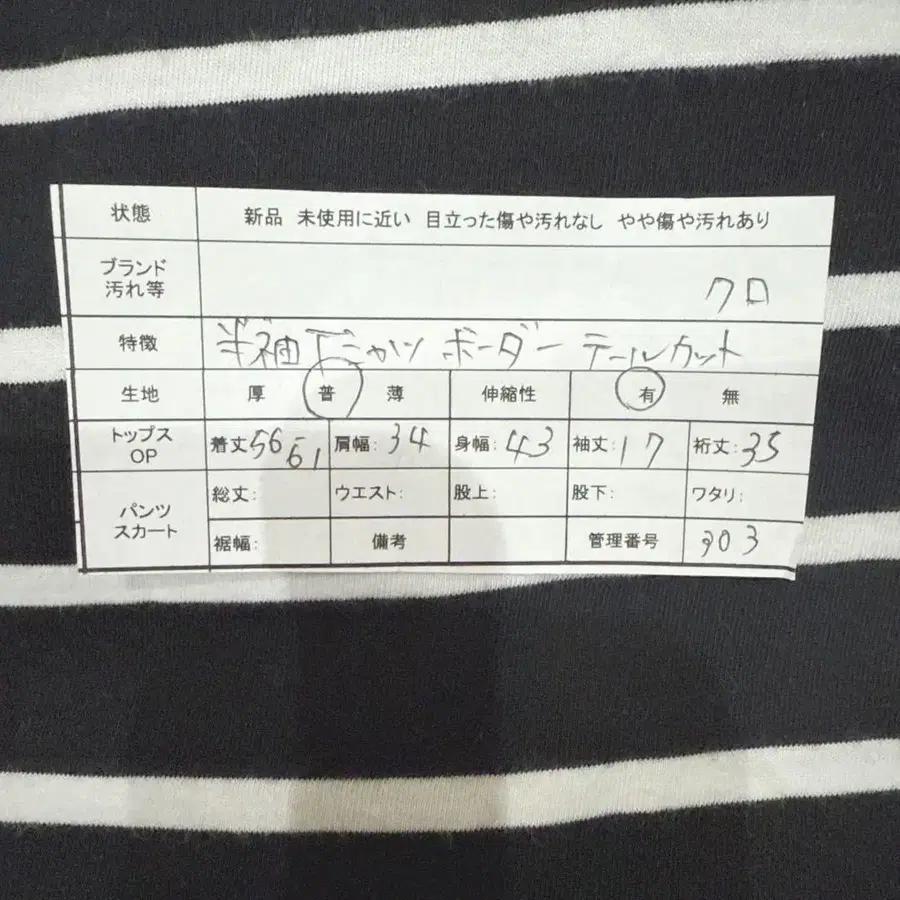 状態 新品 未使用に近い 目立った傷や汚れなし やや傷や汚れあり
ブランド
汚れ等 クロ
特徴 半袖 ボーダー テールカット
生地 厚 普 薄 伸縮性 有 無
トップス
OP 着丈56 61 肩幅:34 身幅:43 袖丈:17 裄丈:35
パンツ
スカート 総丈: ウエスト: 股上: 股下: ワタリ:
裾幅: 備考 管理番号 303